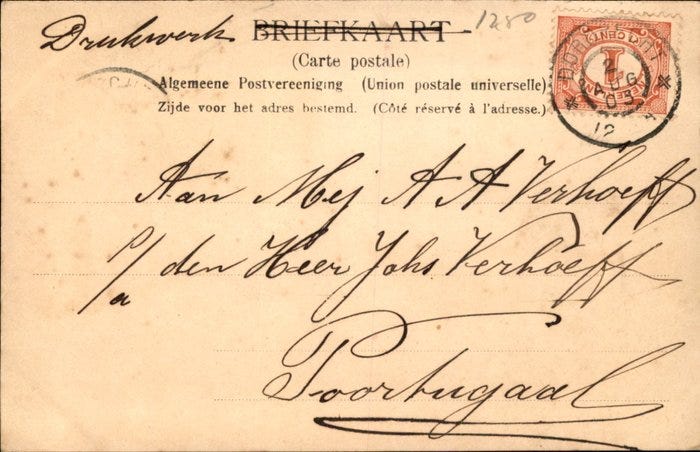 Drukwerk BRIEFKAART 1280
(Carte postale)
Algemeene Postvereeniging (Union postale universelle)
Zijde voor het adres bestemd. (Côté réservé à l'adresse.)
1
DORDRECHT
2
AUG
03
12
Aan Mej A A Verhoeff
p/a den Heer Johs Verhoeff
Poortugaal